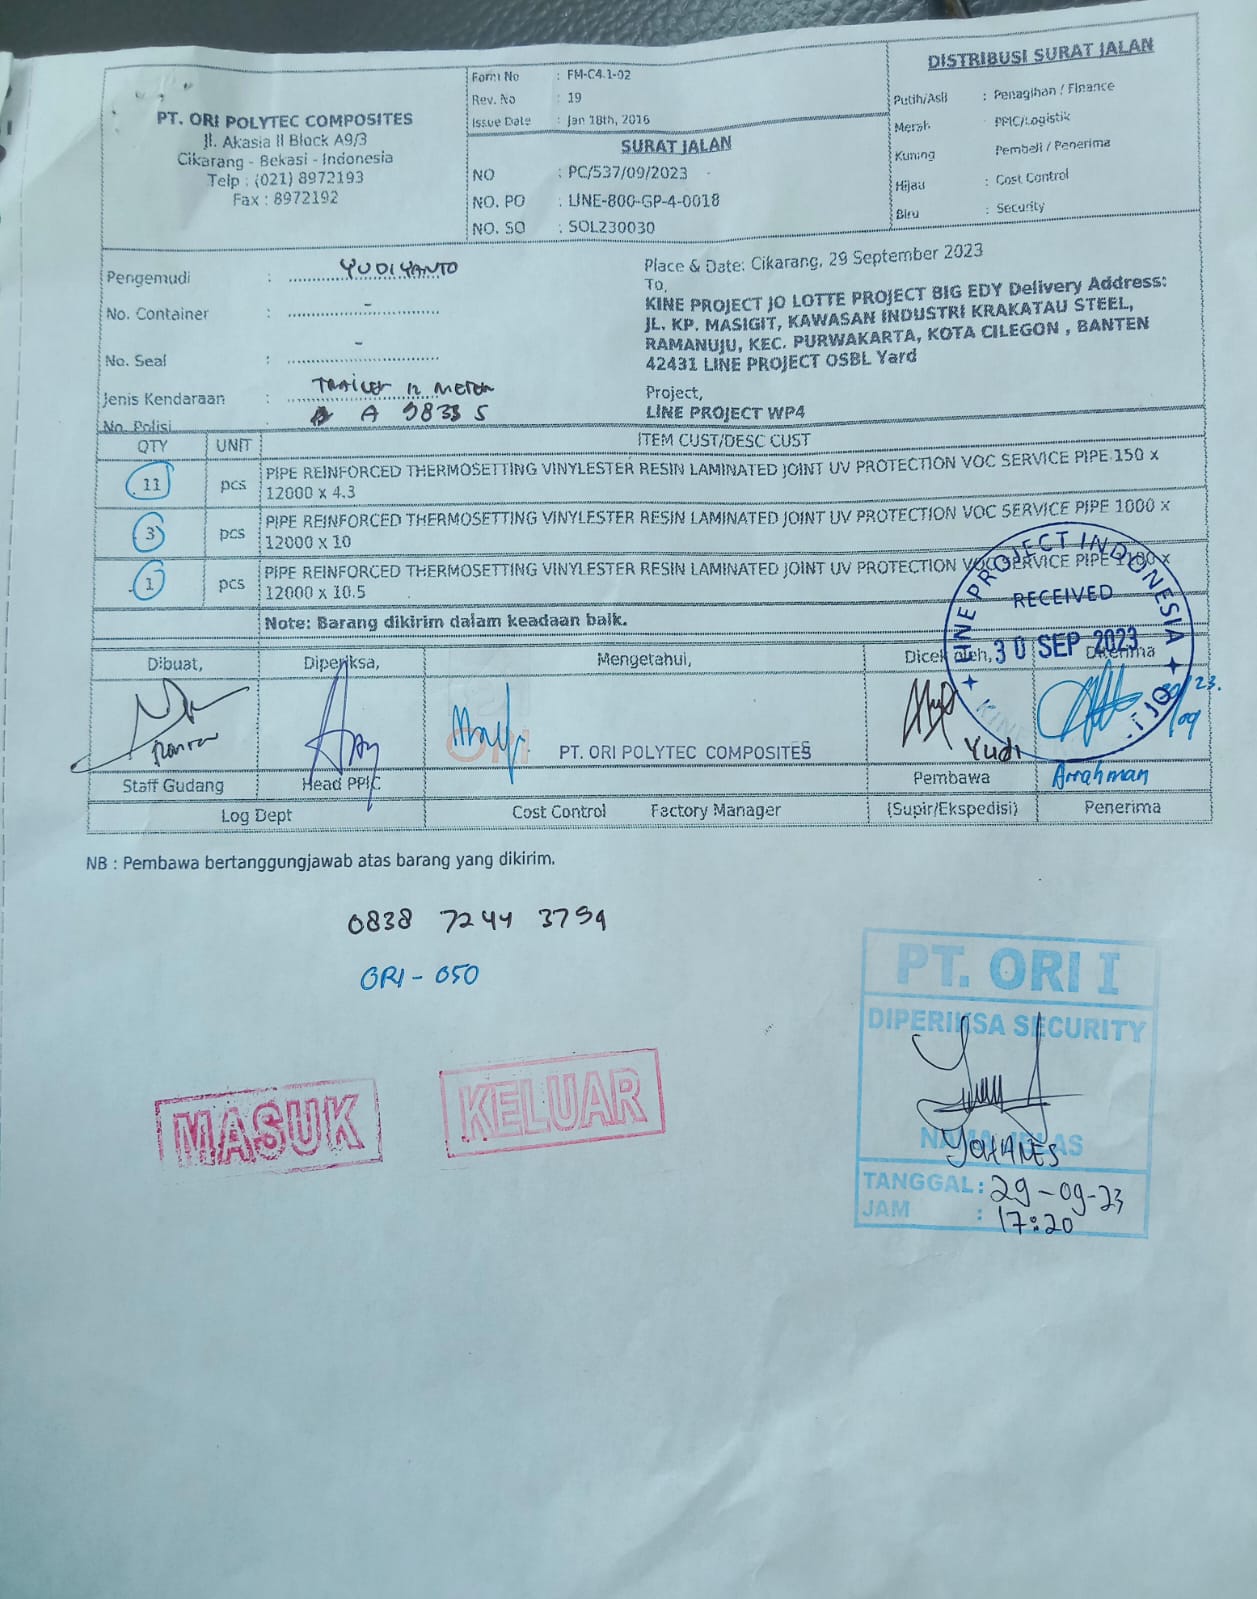 PT. ORI POLYTEC COMPOSITES
Jl. Akasia II Block A9/3
Cikarang - Bekasi - Indonesia
Telp : (021) 8972193
Fax : 8972192
Form No : FM-C4.1-02
Rev. No : 19
Issue Date : Jan 18th, 2016
SURAT JALAN
NO : PC/537/09/2023
NO. PO : LINE-800-GP-4-0018
NO. SO : SOL230030
DISTRIBUSI SURAT JALAN
Putih/Asli : Penagihan / Finance
Merah PPIC/Logistik
Kuning Pembeli / Penerima
Hijau : Cost Control
Biru : Security
Pengemudi : YUDIYANTO
No. Container : -
No. Seal : -
Jenis Kendaraan : TRAILER 12 METER
No. Polisi A 9833 S
Place & Date: Cikarang, 29 September 2023
To,
KINE PROJECT JO LOTTE PROJECT BIG EDY Delivery Address:
JL. KP. MASIGIT, KAWASAN INDUSTRI KRAKATAU STEEL,
RAMANUJU, KEC. PURWAKARTA, KOTA CILEGON , BANTEN
42431 LINE PROJECT OSBL Yard
Project,
LINE PROJECT WP4
QTY UNIT ITEM CUST/DESC CUST
11 pcs PIPE REINFORCED THERMOSETTING VINYLESTER RESIN LAMINATED JOINT UV PROTECTION VOC SERVICE PIPE 150 x
12000 x 4.3
3 pcs PIPE REINFORCED THERMOSETTING VINYLESTER RESIN LAMINATED JOINT UV PROTECTION VOC SERVICE PIPE 1000 x
12000 x 10
1 pcs PIPE REINFORCED THERMOSETTING VINYLESTER RESIN LAMINATED JOINT UV PROTECTION VOC SERVICE PIPE 1100 x
12000 x 10.5
Note: Barang dikirim dalam keadaan baik.
KINE PROJECT INDONESIA
RECEIVED
30 SEP 2023
Dibuat, Diperiksa, Mengetahui, Dicek oleh, Diterima
30/09 23.
ORI
PT. ORI POLYTEC COMPOSITES
Yudi
Arrahman
Staff Gudang Head PPIC Pembawa
Log Dept Cost Control Factory Manager (Supir/Ekspedisi) Penerima
NB : Pembawa bertanggungjawab atas barang yang dikirim.
0838 7244 3759
ORI - 050
MASUK
KELUAR
PT. ORI I
DIPERIKSA SECURITY
YOHANES
TANGGAL : 29-09-23
JAM : 17:20